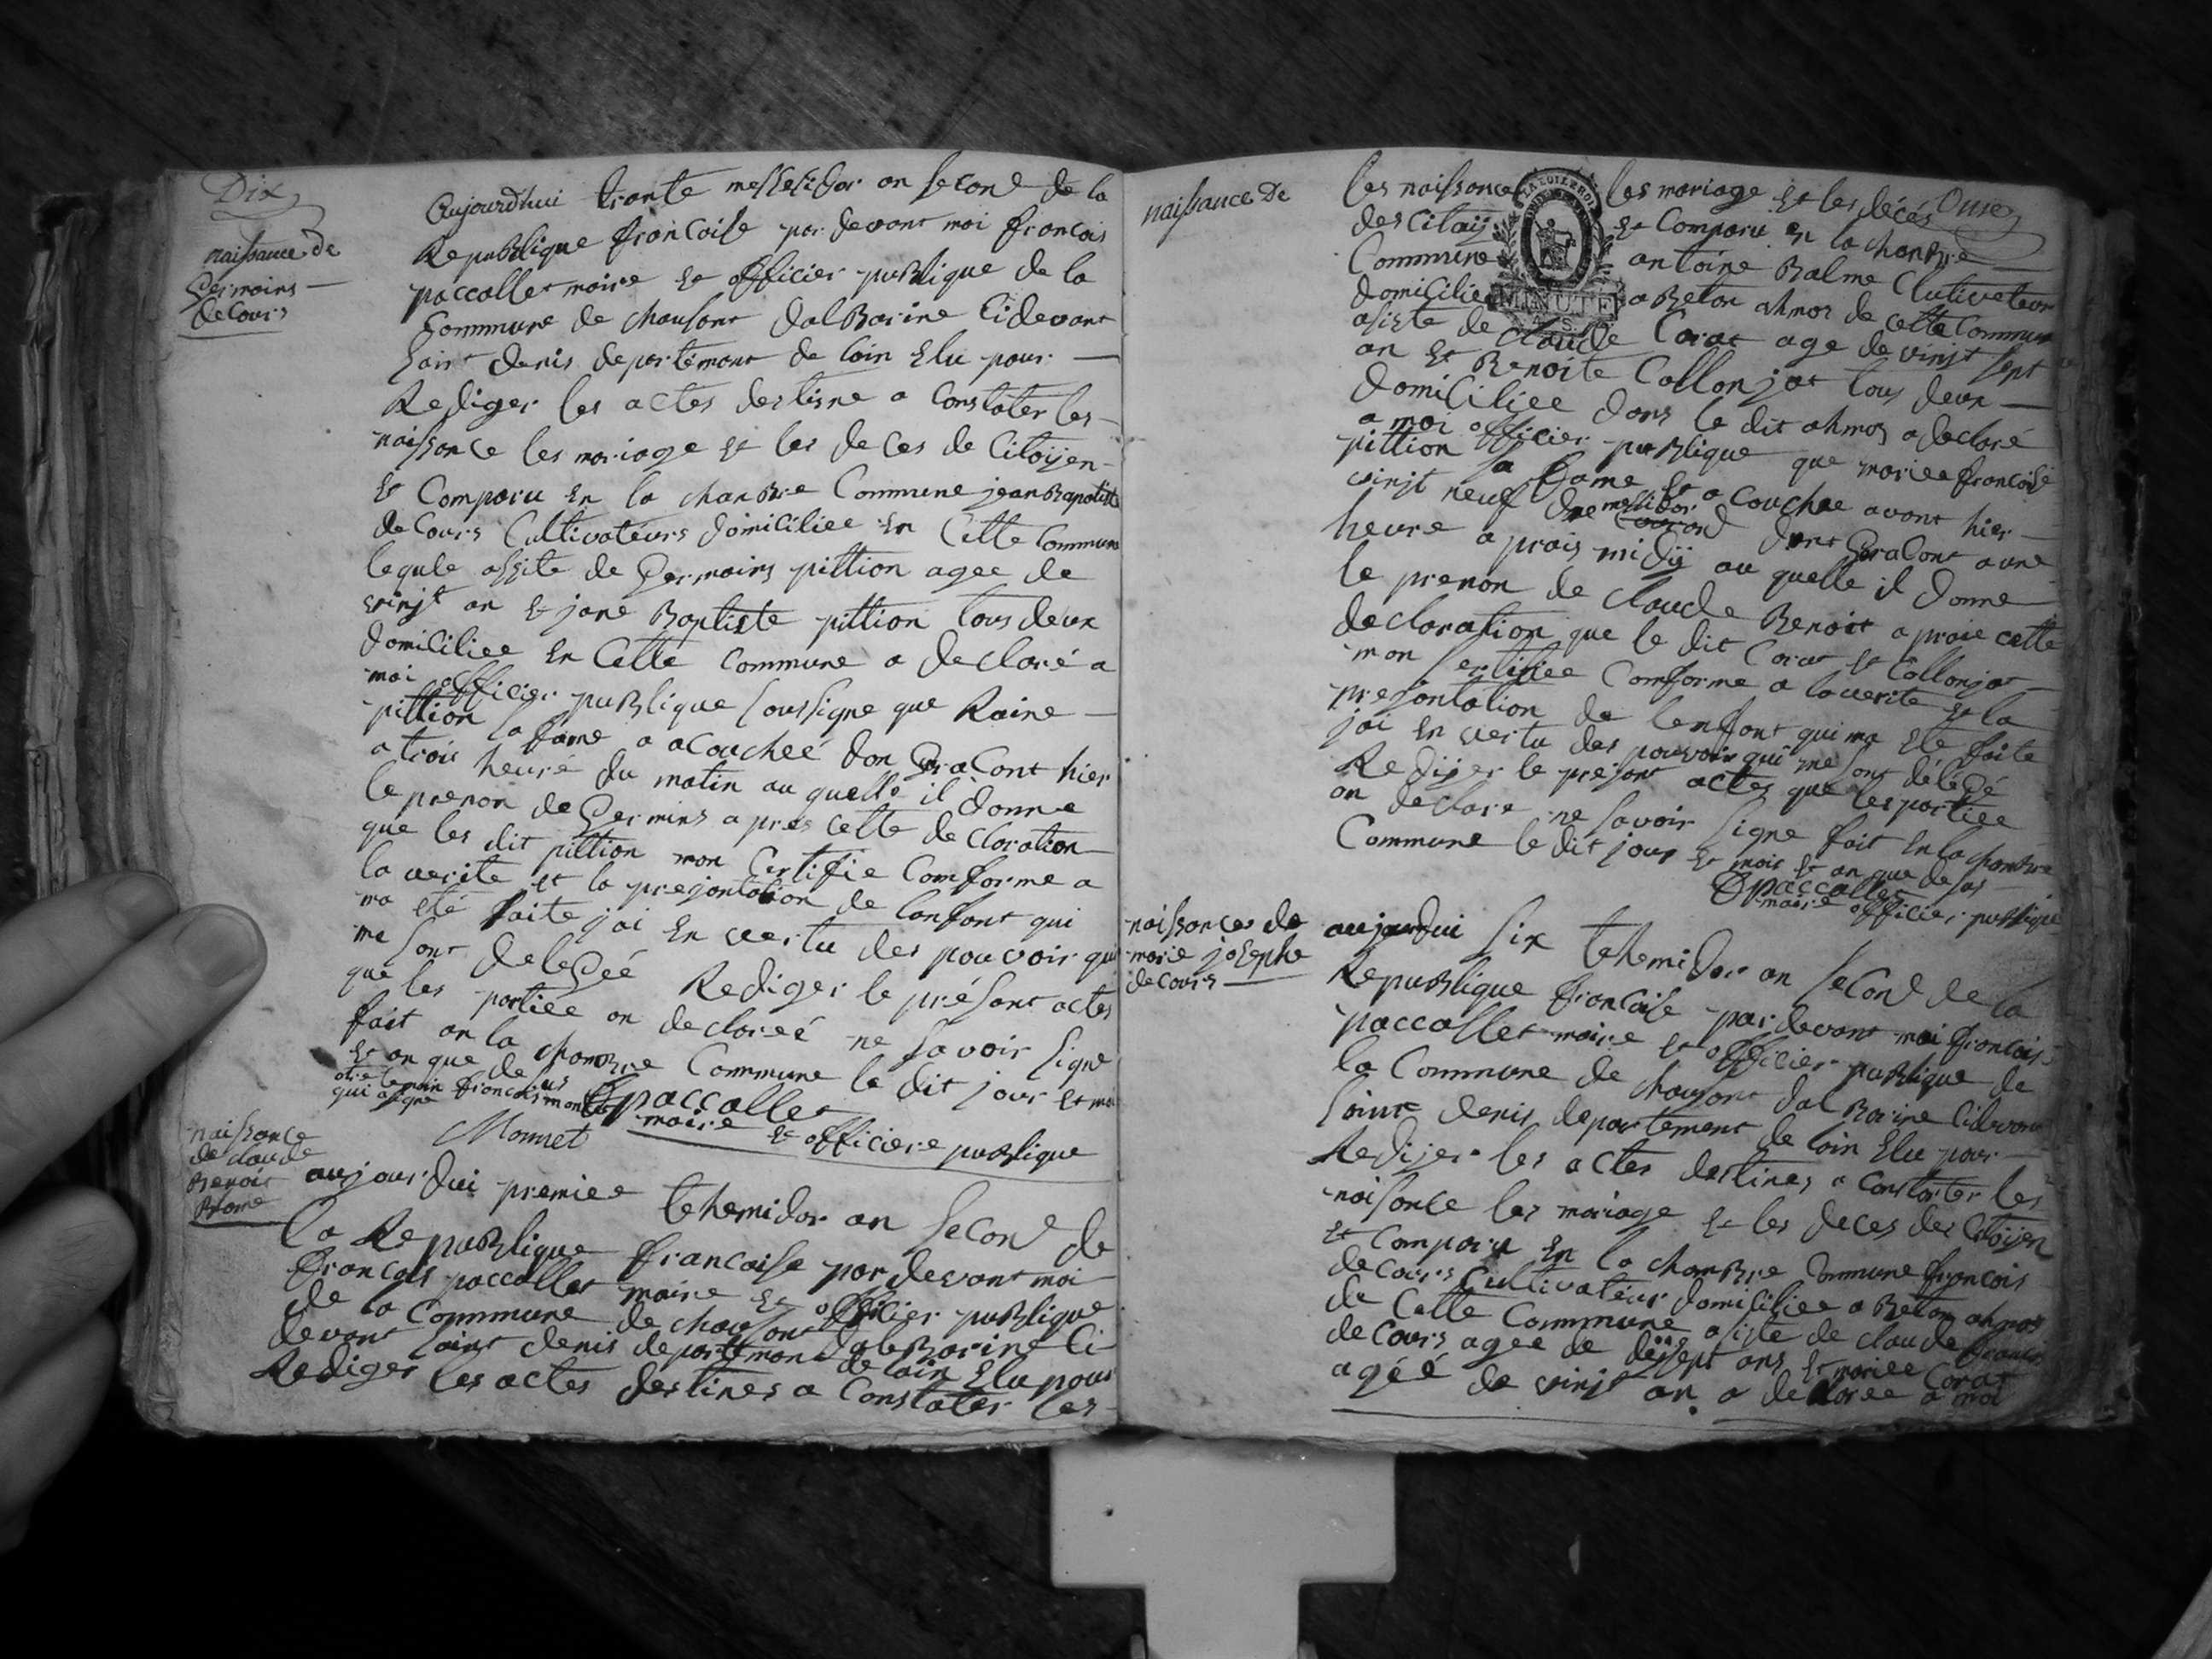 Dix
naissance de
Germains
decours
Aujourd'hui trante messesidor an second de la
Republique francoise par devant moi francois
paccallet maire et officier publique de la
Commune de chausont dalBarine Cidevant
Saint denis departemant de loin Elu pour
Rediger les actes destisne a Constater les
naissance les mariage et les deces de Citoijen
et Comparu en la chanbre Commune jean Bapotiste
decours Cultivateurs domicilliee en Cette Commune
lequle assite de Germains pittion agee de
vinjt an et jane Baptiste pittion tous deux
domiciliee en Cette commune a declaré a
moi officier publique soussigne que Raine
pittion sa fame a acoucheé don Garcont hier
a trois heure du matin au quelle il donne
le prenon de Germins apres cette decloration
que les dit pittion mon Certifie Comforme a
la verite et la prejontation de lanfont qui
ma eté faite jai en vertu des pouvoir qui
me sont deleGeé Rediger le présant actes
que les partiée on decloreé ne savoir signe
fait an la chanbre Commune le dit jour et moi
et an que desus
otre temoin francois monet
qui a signe
paccallet
maire et officiere publique
Monnet
naissance
de claude
Benoit
Blame
aujour dui premiee tehemidor an second de
la Republique francaise par devant moi
francois paccallet maire et officier publique
de la Commune de chausont dalbarine Ci
devant saint denis departemont de loin Elu pour
Rediger les actes destines a Constater les
naissance De
les naissance les mariage et les décés
Onze
des Citoij et Comparu en la chanbre
Commune antoine Balme Clutivateur
domicilie a Beton ahmos de cette Commune
asiste de Claude Corat age de vinjt sept
an et Benoite Collonjat tous deux
domiciliee dans le dit ahmos a decloré
a moi officier publique que mariee francoise
pittion sa fame et a couchee avant hier
vinjt neuf messidor dont Garcont a une
heure aprais midij au quelle il donne
le prenon de claude Benoit apraie cette
decloration que le dit Corat et Collonjat
mon sertifiee Comforme a la verite et la
prejontation de lenfont qui ma ete faite
jai en vertu des pouvoir qui me sont déléGé
Redijer le présont actes que les partiee
on declare ne savoir signe fait en la chanbre
Commune le dit jour et mois et an que desus
paccallet
maire officier publique
naissances de
marie josephe
decours
aujourdui six tehemidor an second de la
Republique francaise par devant moi francois
paccallet maire et officier publique de
la Commune de chausont dalbarine Cidevant
saint denis departement de loin Elu pour
Redijer les actes destines a constater les
naisonce les mariage et les deces des Citoijen
et Comparu en la chanbre Commune francois
decours Cultivateur domiciliee a Beton ahmos
de Cette Commune asiste de claude francois
decours agee de disept ans et mariee Corat
agéé de vinjt an a declaree a moi
LA LOI LE ROI
MINUTE